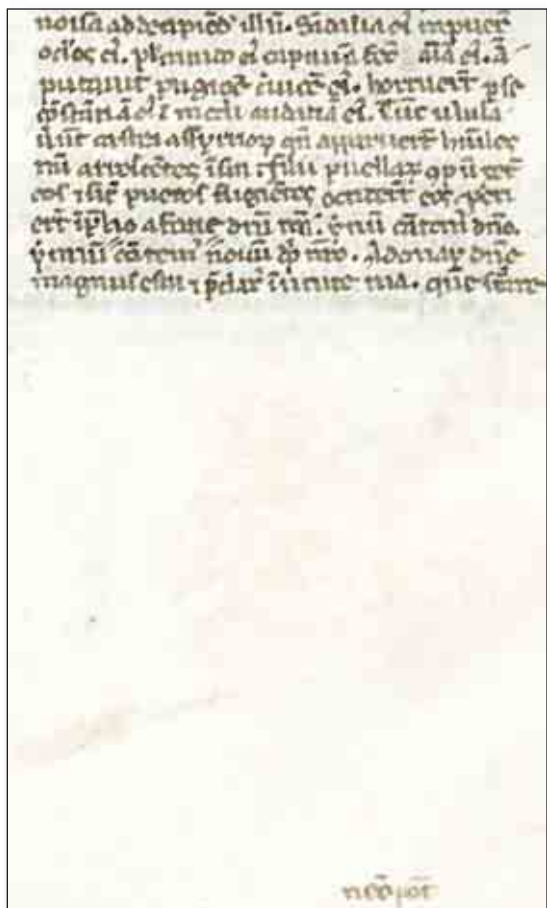 noua ad decipiēdū illū. Sādalia eı᷒ rapuer̄t
oc̄los eı᷒. pl̄critudo eı᷒ captiuā fec̄ aīa eı᷒. ā
putauit pugiōe c̄uicē eı᷒. horruer̄t pse
ɔ̄stātiā eı᷒ ⁊ medi audaciā eı᷒. Tūc ulula
uer̄t castra assyrioꝝ qn̄ apparuer̄t hūiles
mī arescētes ī siti. filii puellaꝝ ɔpūxer̄t
eos ⁊ sic̄ pueros fugiētes occider̄t eos. peri
er̄t ī p̄lio a facie dn̄i mī. ẏnū cātem᷒ dn̄o.
ẏmnū cātem᷒ nouū dō nr̄o. Adonay dn̄e
magnus es tu ⁊ p̄clar᷒ ī uirtute tua. quē
nēo pōt